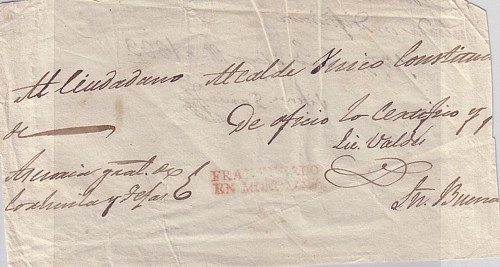 Al Ciudadano Alcalde Unico Constitu
de
De oficio lo Certifico y
Lic. Valdes
gral. de
Coahuila y Tejas
FRANQUEADO
EN MONCLOVA
Sn. Buena